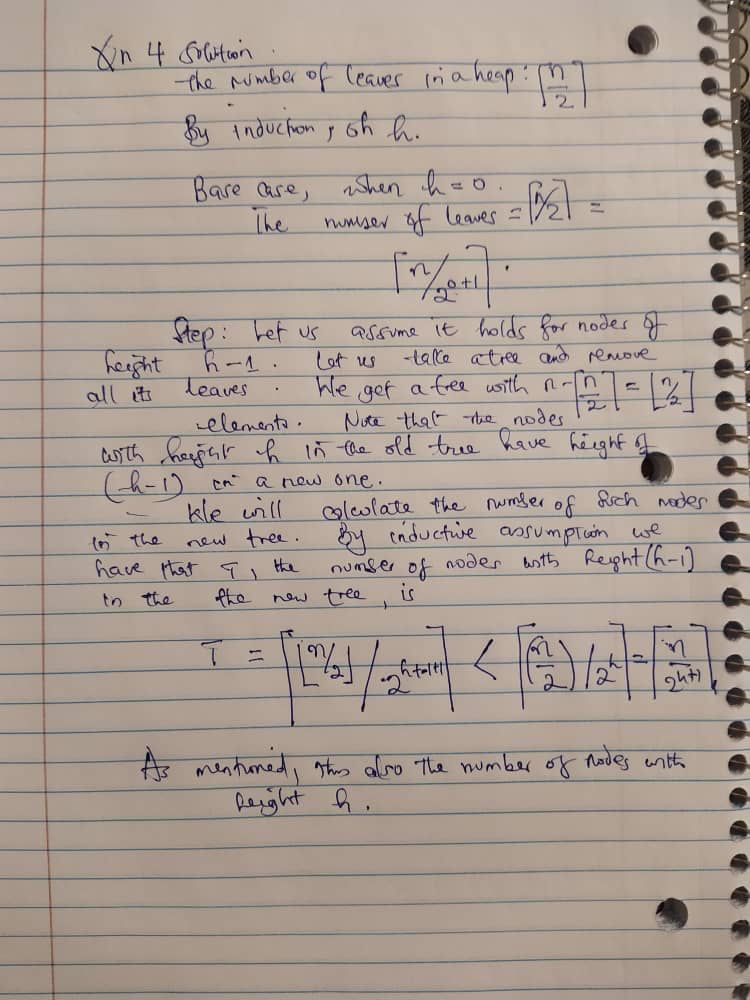 Qn 4 Solution.
-the number of leaves in a heap: ⌈n/2⌉
By induction, on h.
Base case, when h=0.
The number of leaves = ⌈n/2⌉ =
⌈n/2^(0+1)⌉.
Step: Let us assume it holds for nodes of
height h-1. Let us take a tree and remove
all its leaves. We get a tree with n-⌈n/2⌉ = ⌊n/2⌋
elements. Note that the nodes
with height h in the old tree have height of
(h-1) in a new one.
- We will calculate the number of such nodes
in the new tree. By inductive assumption we
have that T, the number of nodes with height (h-1)
in the the new tree, is
T = ⌈⌊n/2⌋/2^(h-1+1)⌉ < ⌈(n/2)/2^h⌉ = ⌈n/2^(h+1)⌉,
As mentioned, this also the number of nodes with
height h.